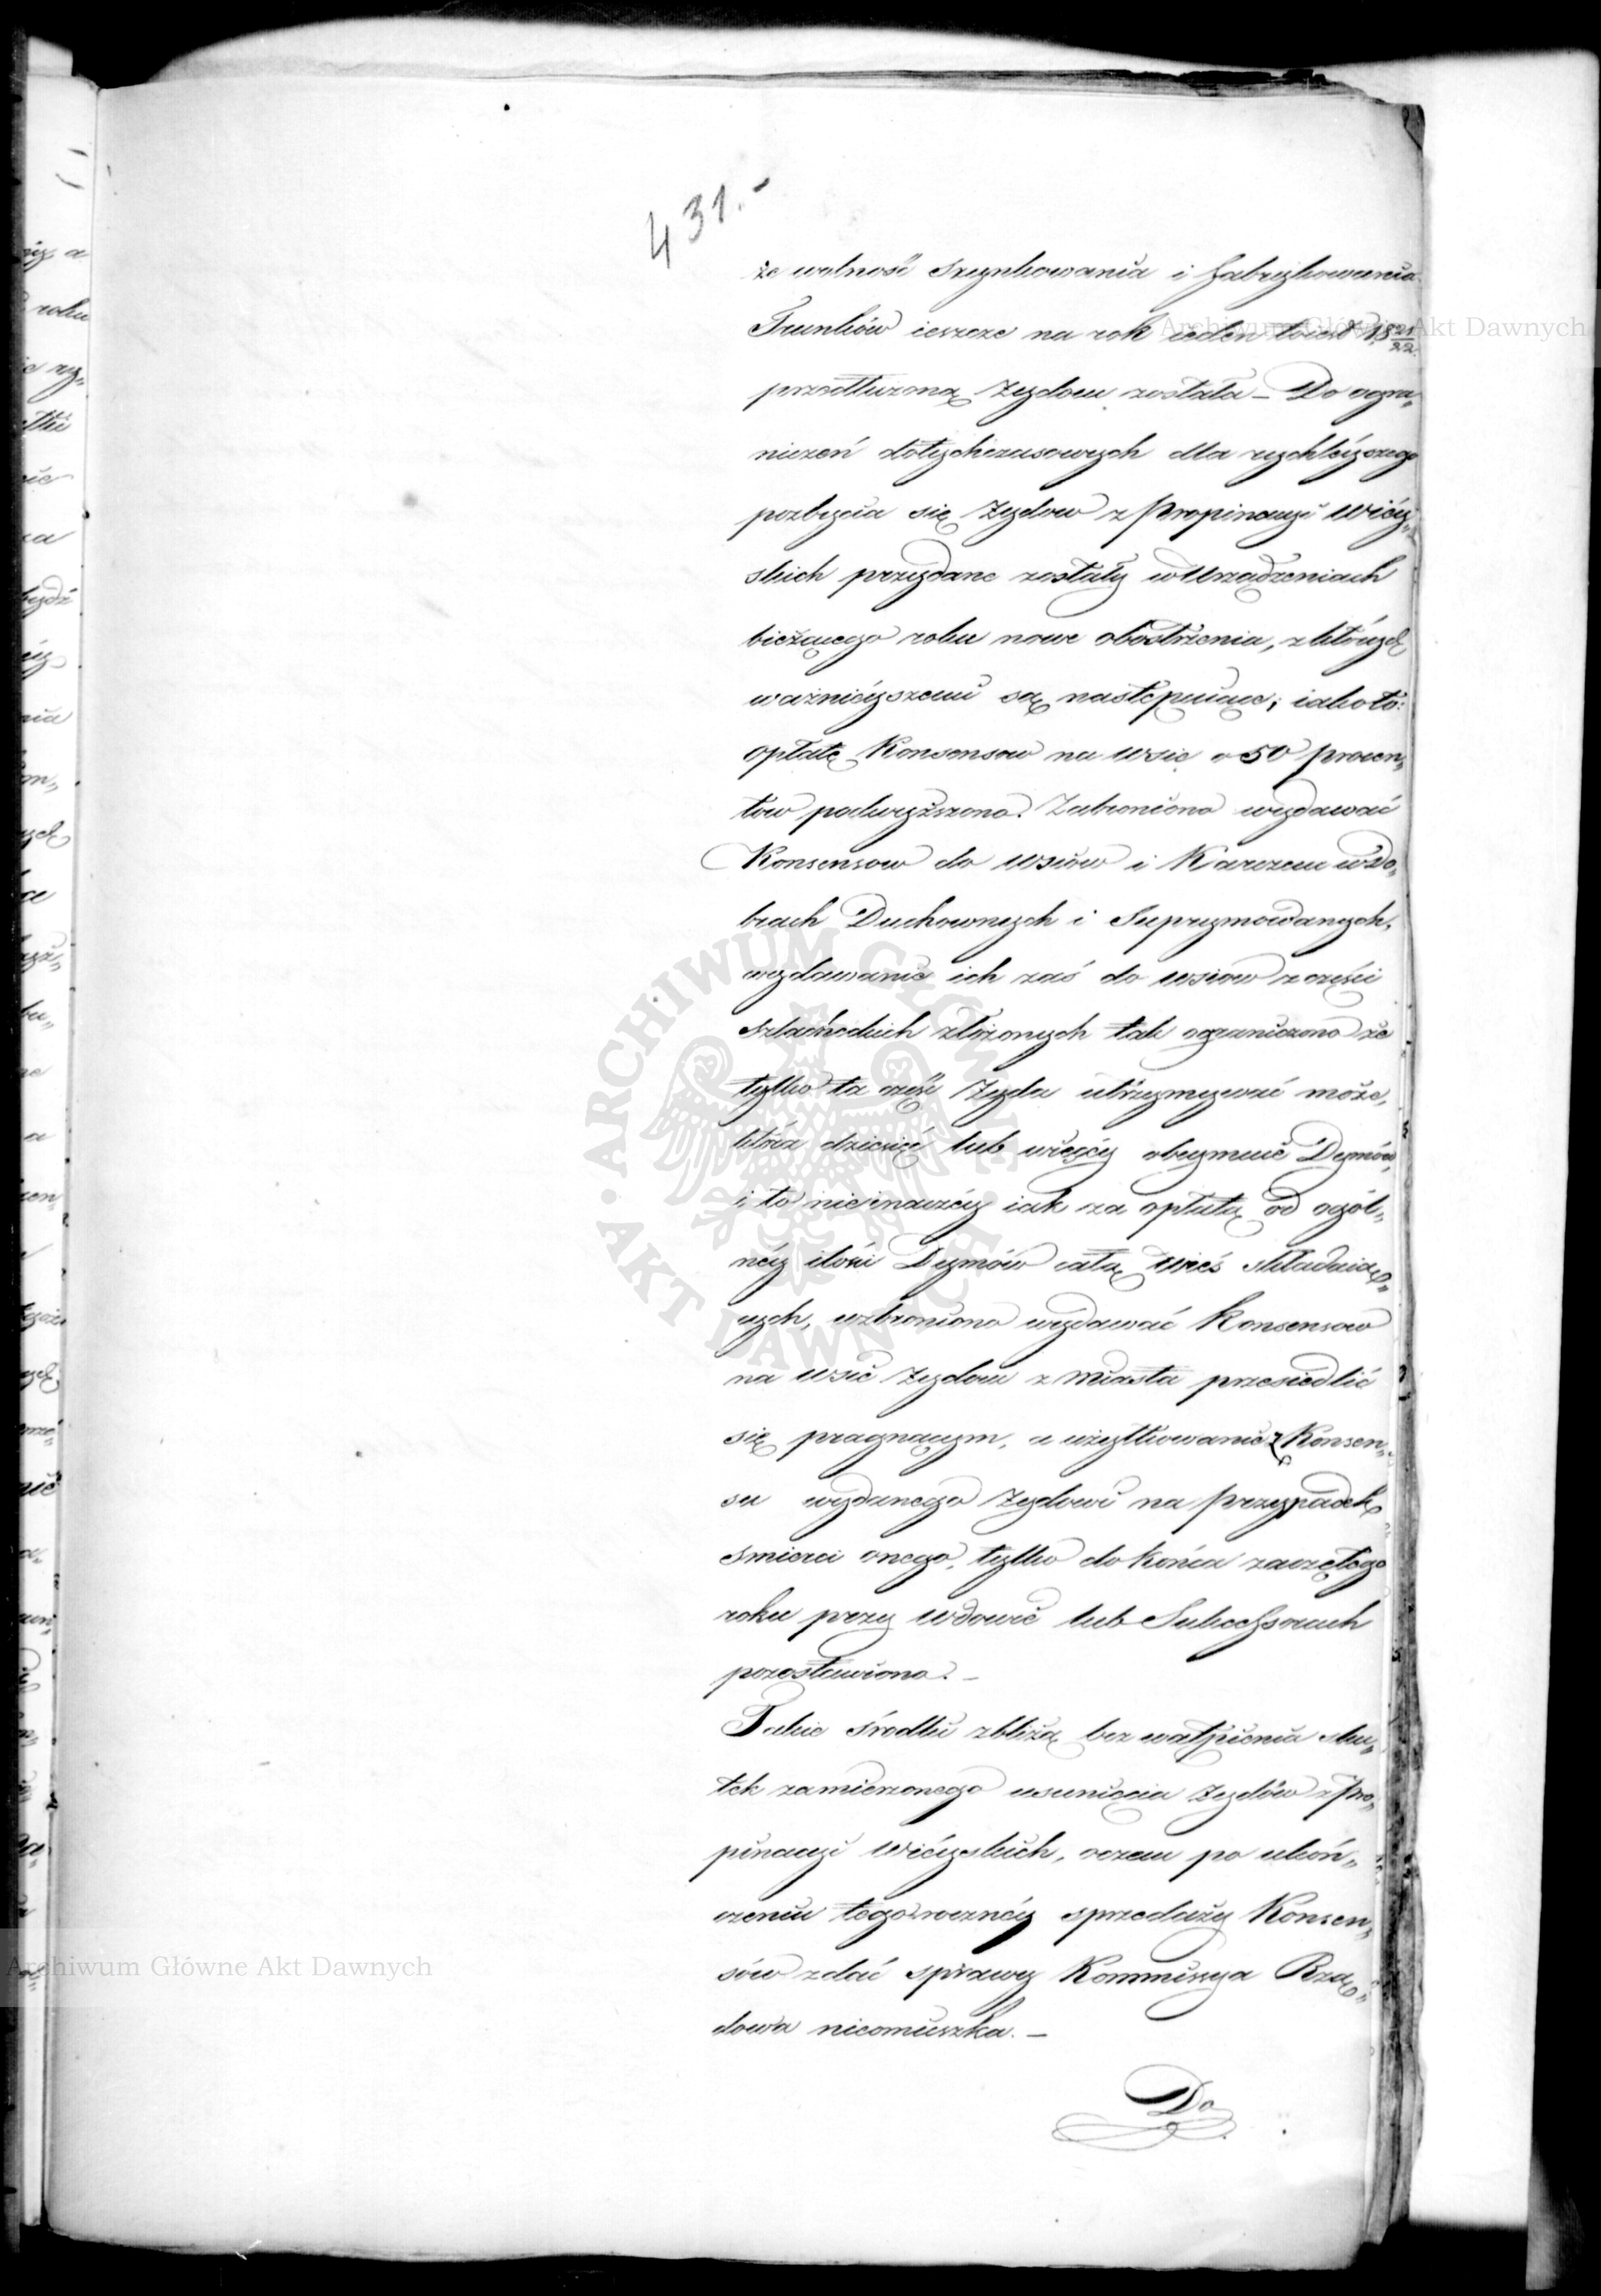 431.-
że wolność szynkowania i fabrykowania
Trunków ieszcze na rok ieden toiest 18 21/22.
przedłużoną Żydom została – Do ogra„
niczeń dotychczasowych dla rychléyszego
pozbycia się Żydow z Propinacyi Wiéy„
skich przydane zostały w Urządzeniach
bieżącego roku nowe obostrżenia, z których
ważniéyszemi są następuiące; iakoto:
opłatę Konsensow na wsie o 50 procen„
tow podwyższono. Zabroniono wydawać
Konsensow do wsiow i Karczem w Do„
brach Duchownych i Suprymowanych,
wydawanie ich zaś do wsiow z części
szlacheckich złożonych tak ograniczono że
tylko ta część Żyda utrzymywać może,
która dziesięć lub więcéy obeymuie Dymów,
i to nieinaczéy iak za opłatą od ogól„
néy ilości Dymów całą wieś składaią„
cych, wzbroniono wydawać Konsensow
na wsie Żydom z miasta przesiedlić
się pragnącym, a użytkowanie z Konsen„
su wydanego Żydowi na przypadek
smierci onego, tylko do końca zaczętego
roku przy wdowie lub Sukcessorach
pozostawiono. –
Takie środki zbliżą bez wątpienia sku„
tek zamierzonego usunięcia Żydów z Pro„
pinacyi Wiéyskich, oczem po ukoń„
czeniu tegoroznéy sprzedaży Konsen„
sów zdać sprawy Kommissya Rzą„
dowa nieomieszka. –
Do
Archiwum Główne Akt Dawnych
Archiwum Główne Akt Dawnych
ARCHIWUM GŁÓWNE · AKT DAWNYCH ·